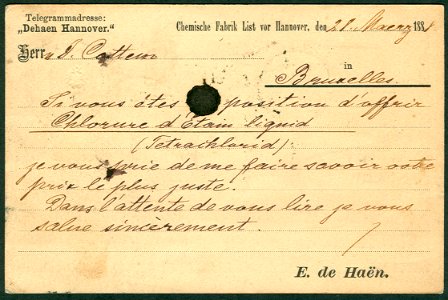 Telegrammadresse:
„Dehaen Hannover.“
Chemische Fabrik List vor Hannover, den 21 Maerz 188
Herrn Cottem
in
Bruxelles.
Si vous étes position d'offrir
Chlorure d'Etain liquid
(Tetrachlorid)
je vous prie de me faire savoir votre
prix le plus juste.
Dans l'attente de vous lire je vous
salue sincèrement.
E. de Haën.